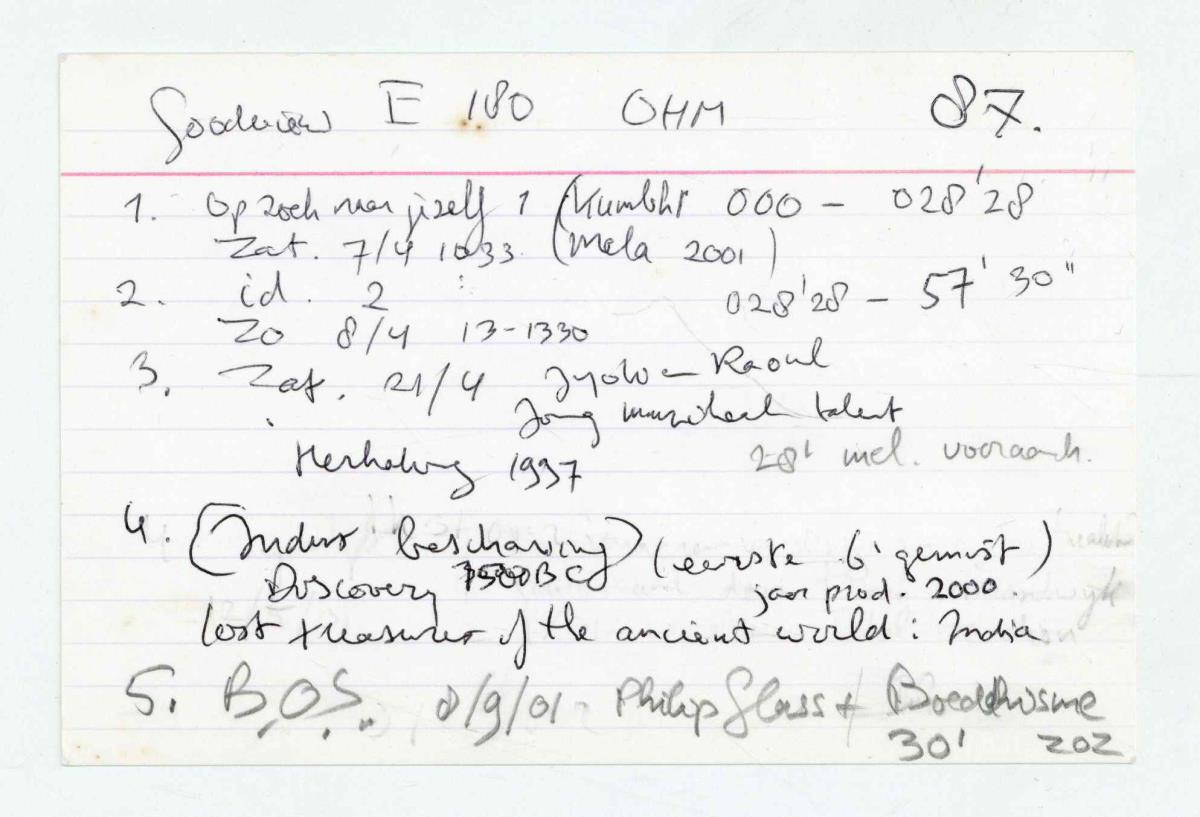 Goodview E 180 OHM 87.
1. Op zoek naar jezelf 1 (Kumbh 000 - 028'28
Zat. 7/4 1033. (Mela 2001)
2. id. 2 028'28 - 57'30"
Zo 8/4 13-1330
3. Zat. 21/4 Raoul
Jong muzikaal talent
Herhaling 1997 28' incl. vooraank.
4. (Indus beschaving) (eerste 6' gemist)
Discovery BC jaar prod. 2000.
lost treasures of the ancient world: India
5. B.O.S. 8/9/01 - Philip Glass + Boeddhisme
30' ZOZ